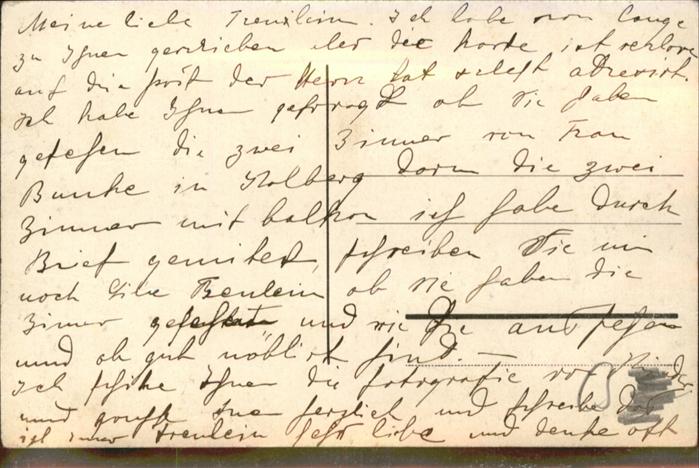 Meine liebe Freulein. Ich habe von lange
zu Ihnen geschrieben aber die Karte ist verloren
auf die post der Herr hat selbst adresirt.
ich habe Ihnen gefragt ob Sie haben
gesehen die zwei Zimmer von Frau
Bunke in Kolberg darin die zwei
Zimmer mit balkon ich habe durch
Brief gemitet, schreiben Sie mir
noch liebe Freulein ob sie haben die
Zimer und wie Sie aussehen
und ob gut möblirt sind. –
Ich schike Ihnen die fotografie von Kinder
und herzlich und schreibe
ich Freulein sehr liebe und denke oft